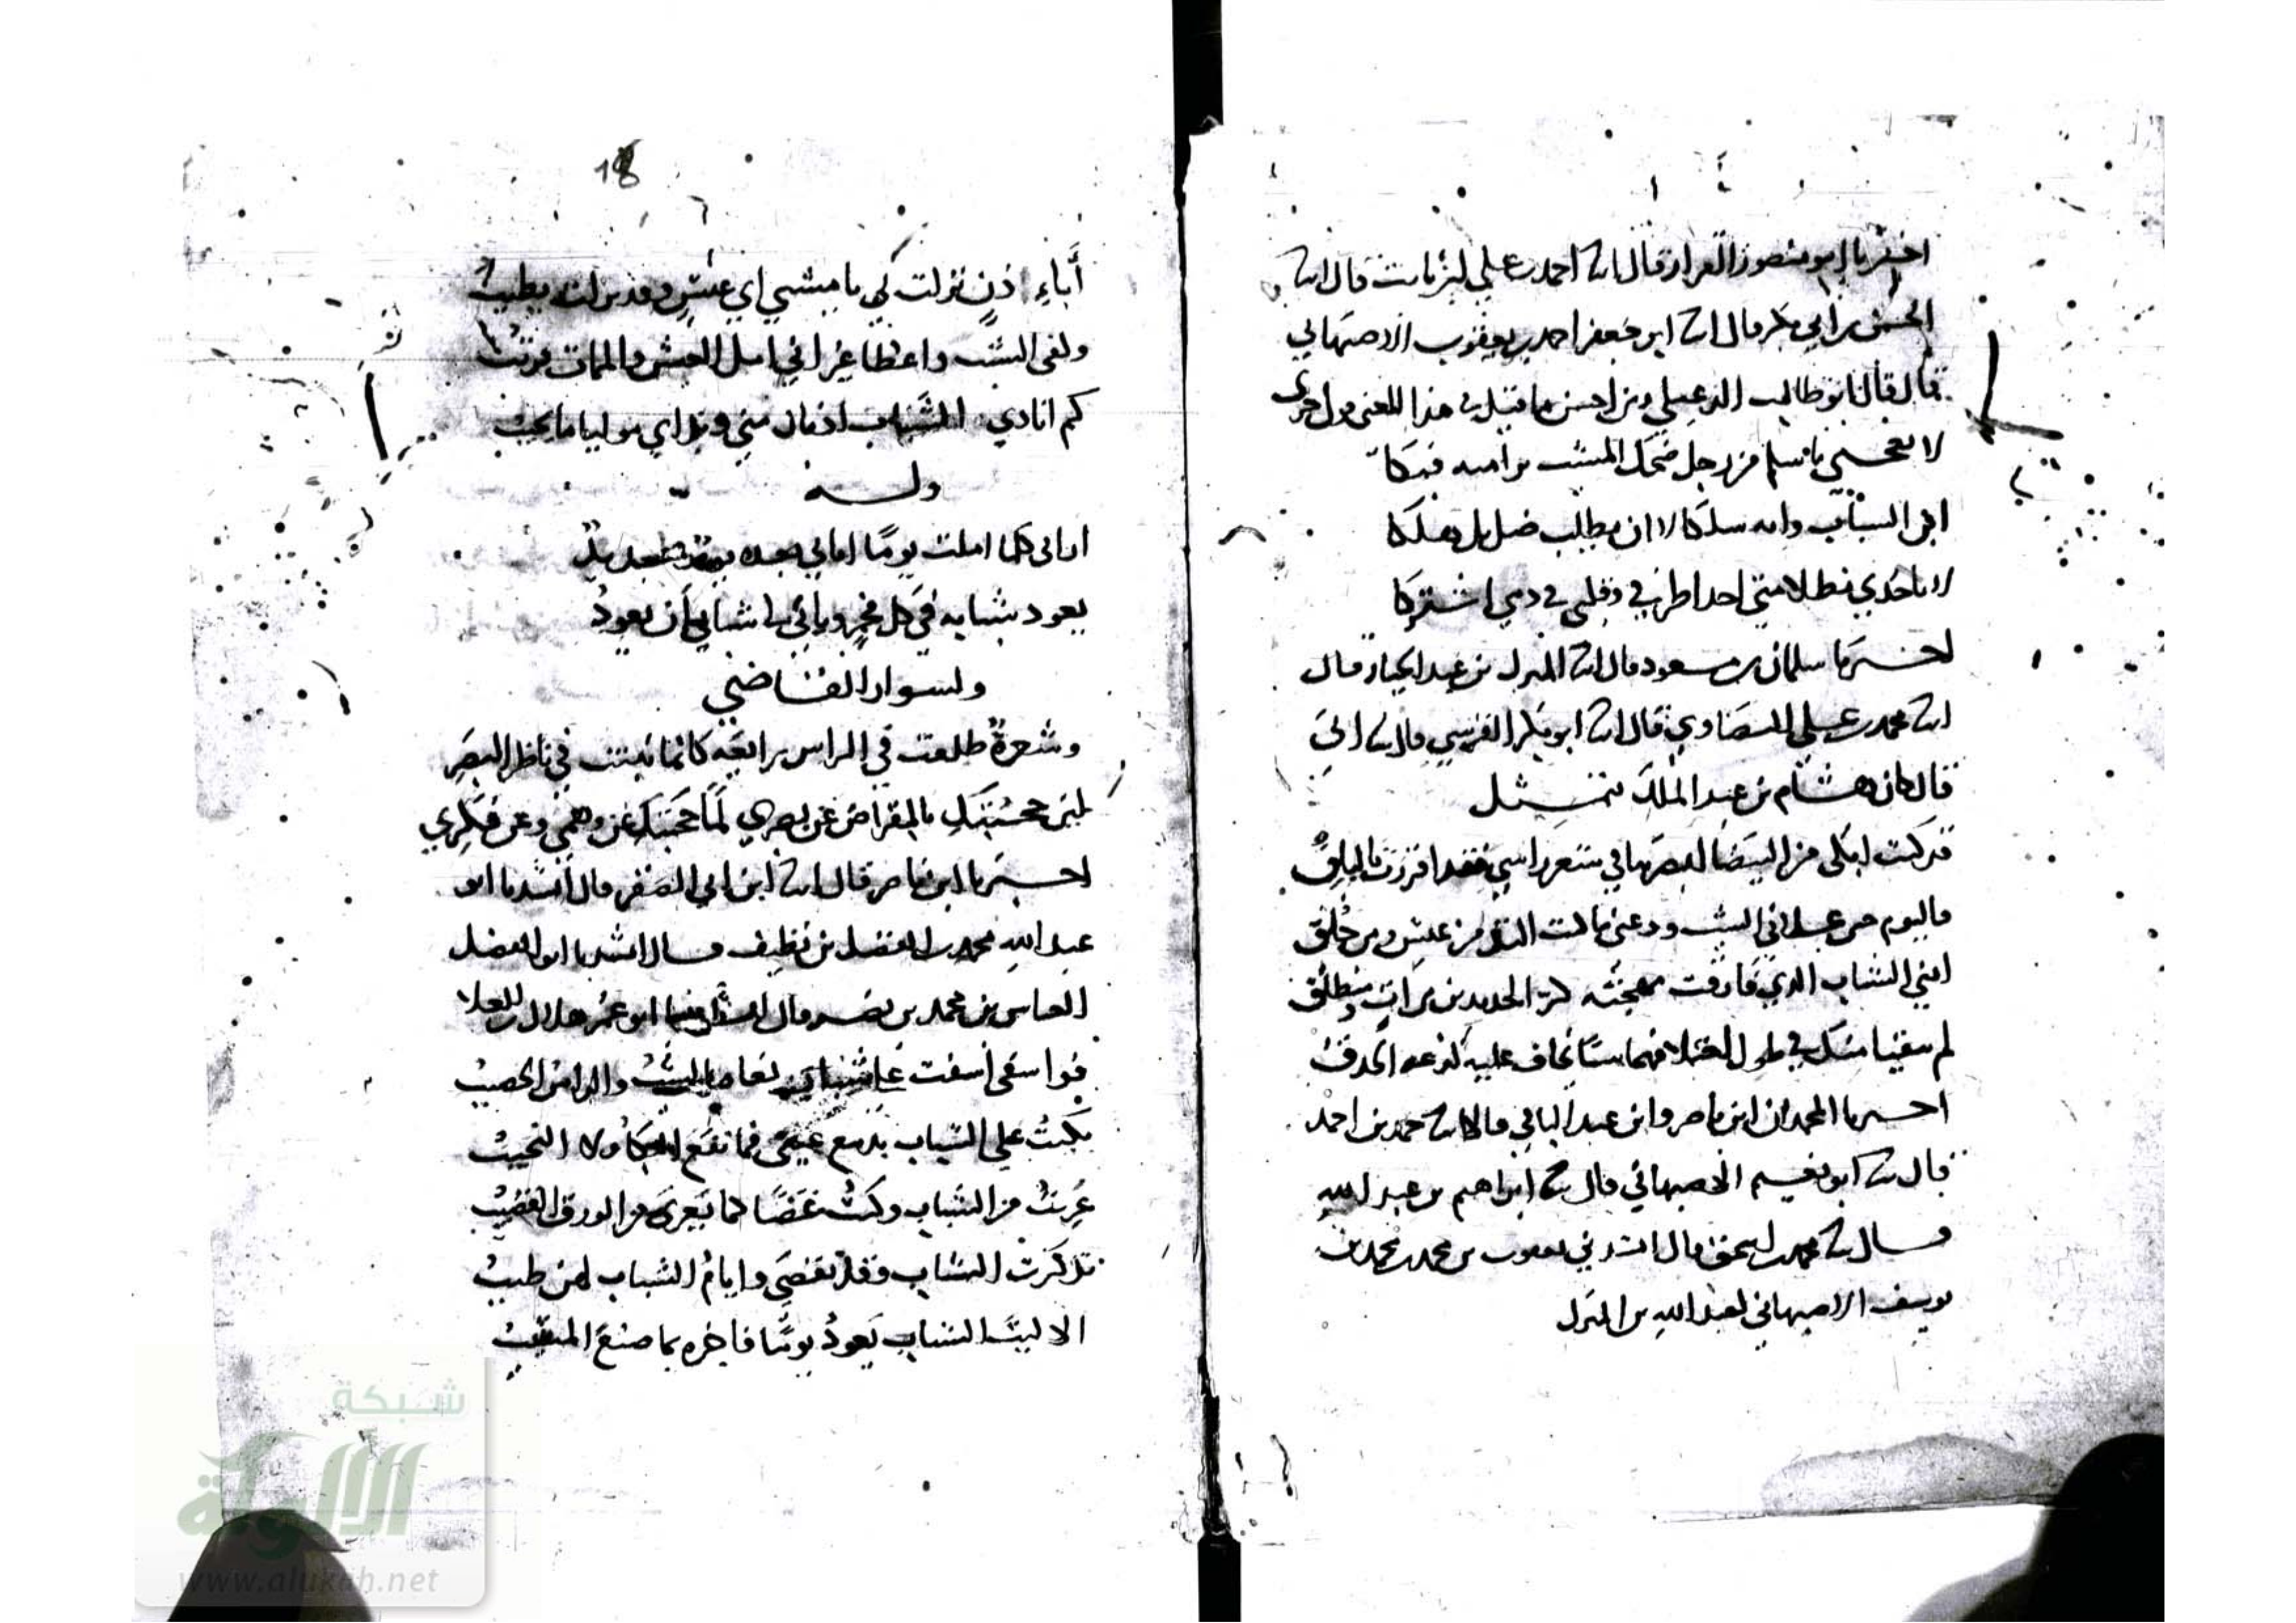 اخبرنا ابو منصور القزاز قال انا احمد بن علي بن ثابت قال انا
الحسن بن ابي بكر قال انا ابو جعفر احمد بن يعقوب الاصبهاني
قال قال لنا ابو طالب الدعبلي ومن احسن ما قيل في هذا المعنى قول جدي
لا تعجبي يا سلم من رجل ضحك المشيب براسه فبكا
اين الشباب وايه سلكا لا اين يطلب ضل بل هلكا
لا تاخذي بظلامتي احدا طرفي وقلبي في دمي اشتركا
اخبرنا سلمان بن مسعود قال انا المبارك بن عبد الجبار قال
انا محمد بن علي البيضاوي قال انا ابو بكر القرشي قال انا ابي
قال كان هشام بن عبد الملك يتمثل
قد كنت ابكي من البيضا ابصرها في شعر راسي فقد اقررت بالبلق
فاليوم حين علاني الشيب ودعني ما كنت التذ من عيش ومن خلق
ابني الشباب الذي فارقت بهجته
احبرنا المحمدان ابن ناصر وابن عبد الباقي قالا انا حمد بن احمد
قال انا ابو نعيم الاصبهاني قال انا ابراهيم بن عبد الله
قال انا محمد بن اسحق قال انشدني يعقوب بن محمد بن محمد بن
يوسف الاصبهاني لعبد الله بن المبارك
18
نزلت بي يا مشيبي اي عيش وقد نزلت يطيب
وكفى الشيب واعظا غير اني امل العيش والممات قريب
كم انادي الشباب اذ بان مني وندائي موليا ما يجيب
وله
اماني كلما املت يوما اماني بعده يوم جديد
يعود شبابه في كل فجر ويابى لي شبابي ان يعود
ولسوار القاضي
وشعرة طلعت في الراس رايعه كانما نبتت في ناظر البصر
لين حجبتك بالمقراض عن بصري لما حجبتك عن وهمي وعن فكري
اخبرنا ابن ناصر قال انا ابن ابي الصقر قال انشدنا ابو
عبد الله محمد بن الفضل بن نظيف قال انشدنا ابو الفضل
العباس بن محمد بن نصر قال انشدنا ابو عمر هلال بن العلا
فوا اسفى اسفت على شباب نعاه الشيب والراس الخضيب
بكيت على الشباب بدمع عيني فما نفع البكا ولا النحيب
عريت من الشباب وكنت غضا كما يعرى من الورق القضيب
تذكرت الشباب وقد تقضى وايام الشباب لهن طيب
الا ليت الشباب يعود يوما فاخبره بما صنع المشيب
شبكة
الألوكة
www.alukah.net